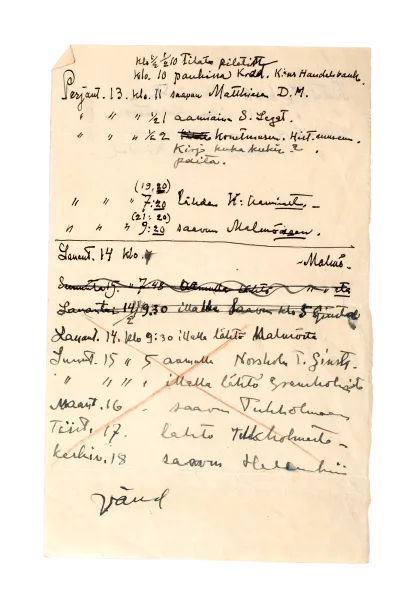 klo ½ 10 Tilata piletit
klo. 10 pankissa Kred. K:us Handelsbank.
Perjant. 13. klo. 11 saapuu Matthiesen D. M.
" " " ½ 1 aamiaina S. Legat.
" " " ½ 2 konstmuseu. Hist. museum.
Kirjo kuka kukin ?
paita.
(19,20)
" " " 7:20 lähden
(21:20)
" " " 9:20 saavun Malmöseen.
Lauant. 14 klo. - Malmö -
Sunnunt. 15 " 7.45 aamulla lähtö
Lauantai 14/2 9.30 illalla saavun klo 5
Lauant. 14. klo 9:30 illalla lähtö Malmöstä
Sunnt. 15 " 5 aamulla
" " " " illalla lähtö
Maant. 16 " saavun Tukholmaan
Tiist. 17. lähtö Tukholmasta -
Keskiv. 18 saavun Helsinkiin
Vänd